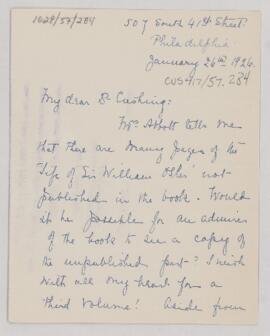 1028/57/284
507 South 41st Street.
Philadelphia
January 26th 1926.
CUS417/57.284
My dear Dr Cushing:
Mrs. Abbott tells me
that there are many pages of the
"Life of Sir William Osler" not
published in the book. Would
it be possible for an admirer
of the book to see a copy of
the unpublished part? I wish
with all my heart for a
third volume! Aside from